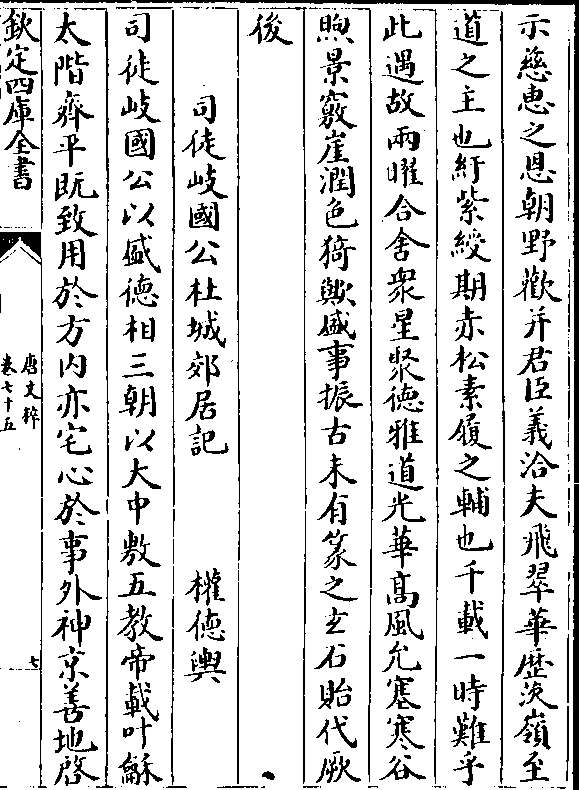 示慈惠之恩朝野歡并君臣義洽夫飛翠華歷茨嶺至
道之主也紆紫綬期赤松素履之輔也千載一時難乎
此遇故兩曜合舍衆星聚德雅道光華髙風允塞寒谷
煦景竅崖潤色猗歟盛事振古未有篆之玄石貽代厥
後
司徒岐國公杜城郊居記 權德輿
司徒岐國公以盛德相三朝以大中敷五教帝載叶龢
太階齊平既致用於方内亦宅心於事外神京善地啓
欽定四庫全書
唐文粹
卷七十五
七